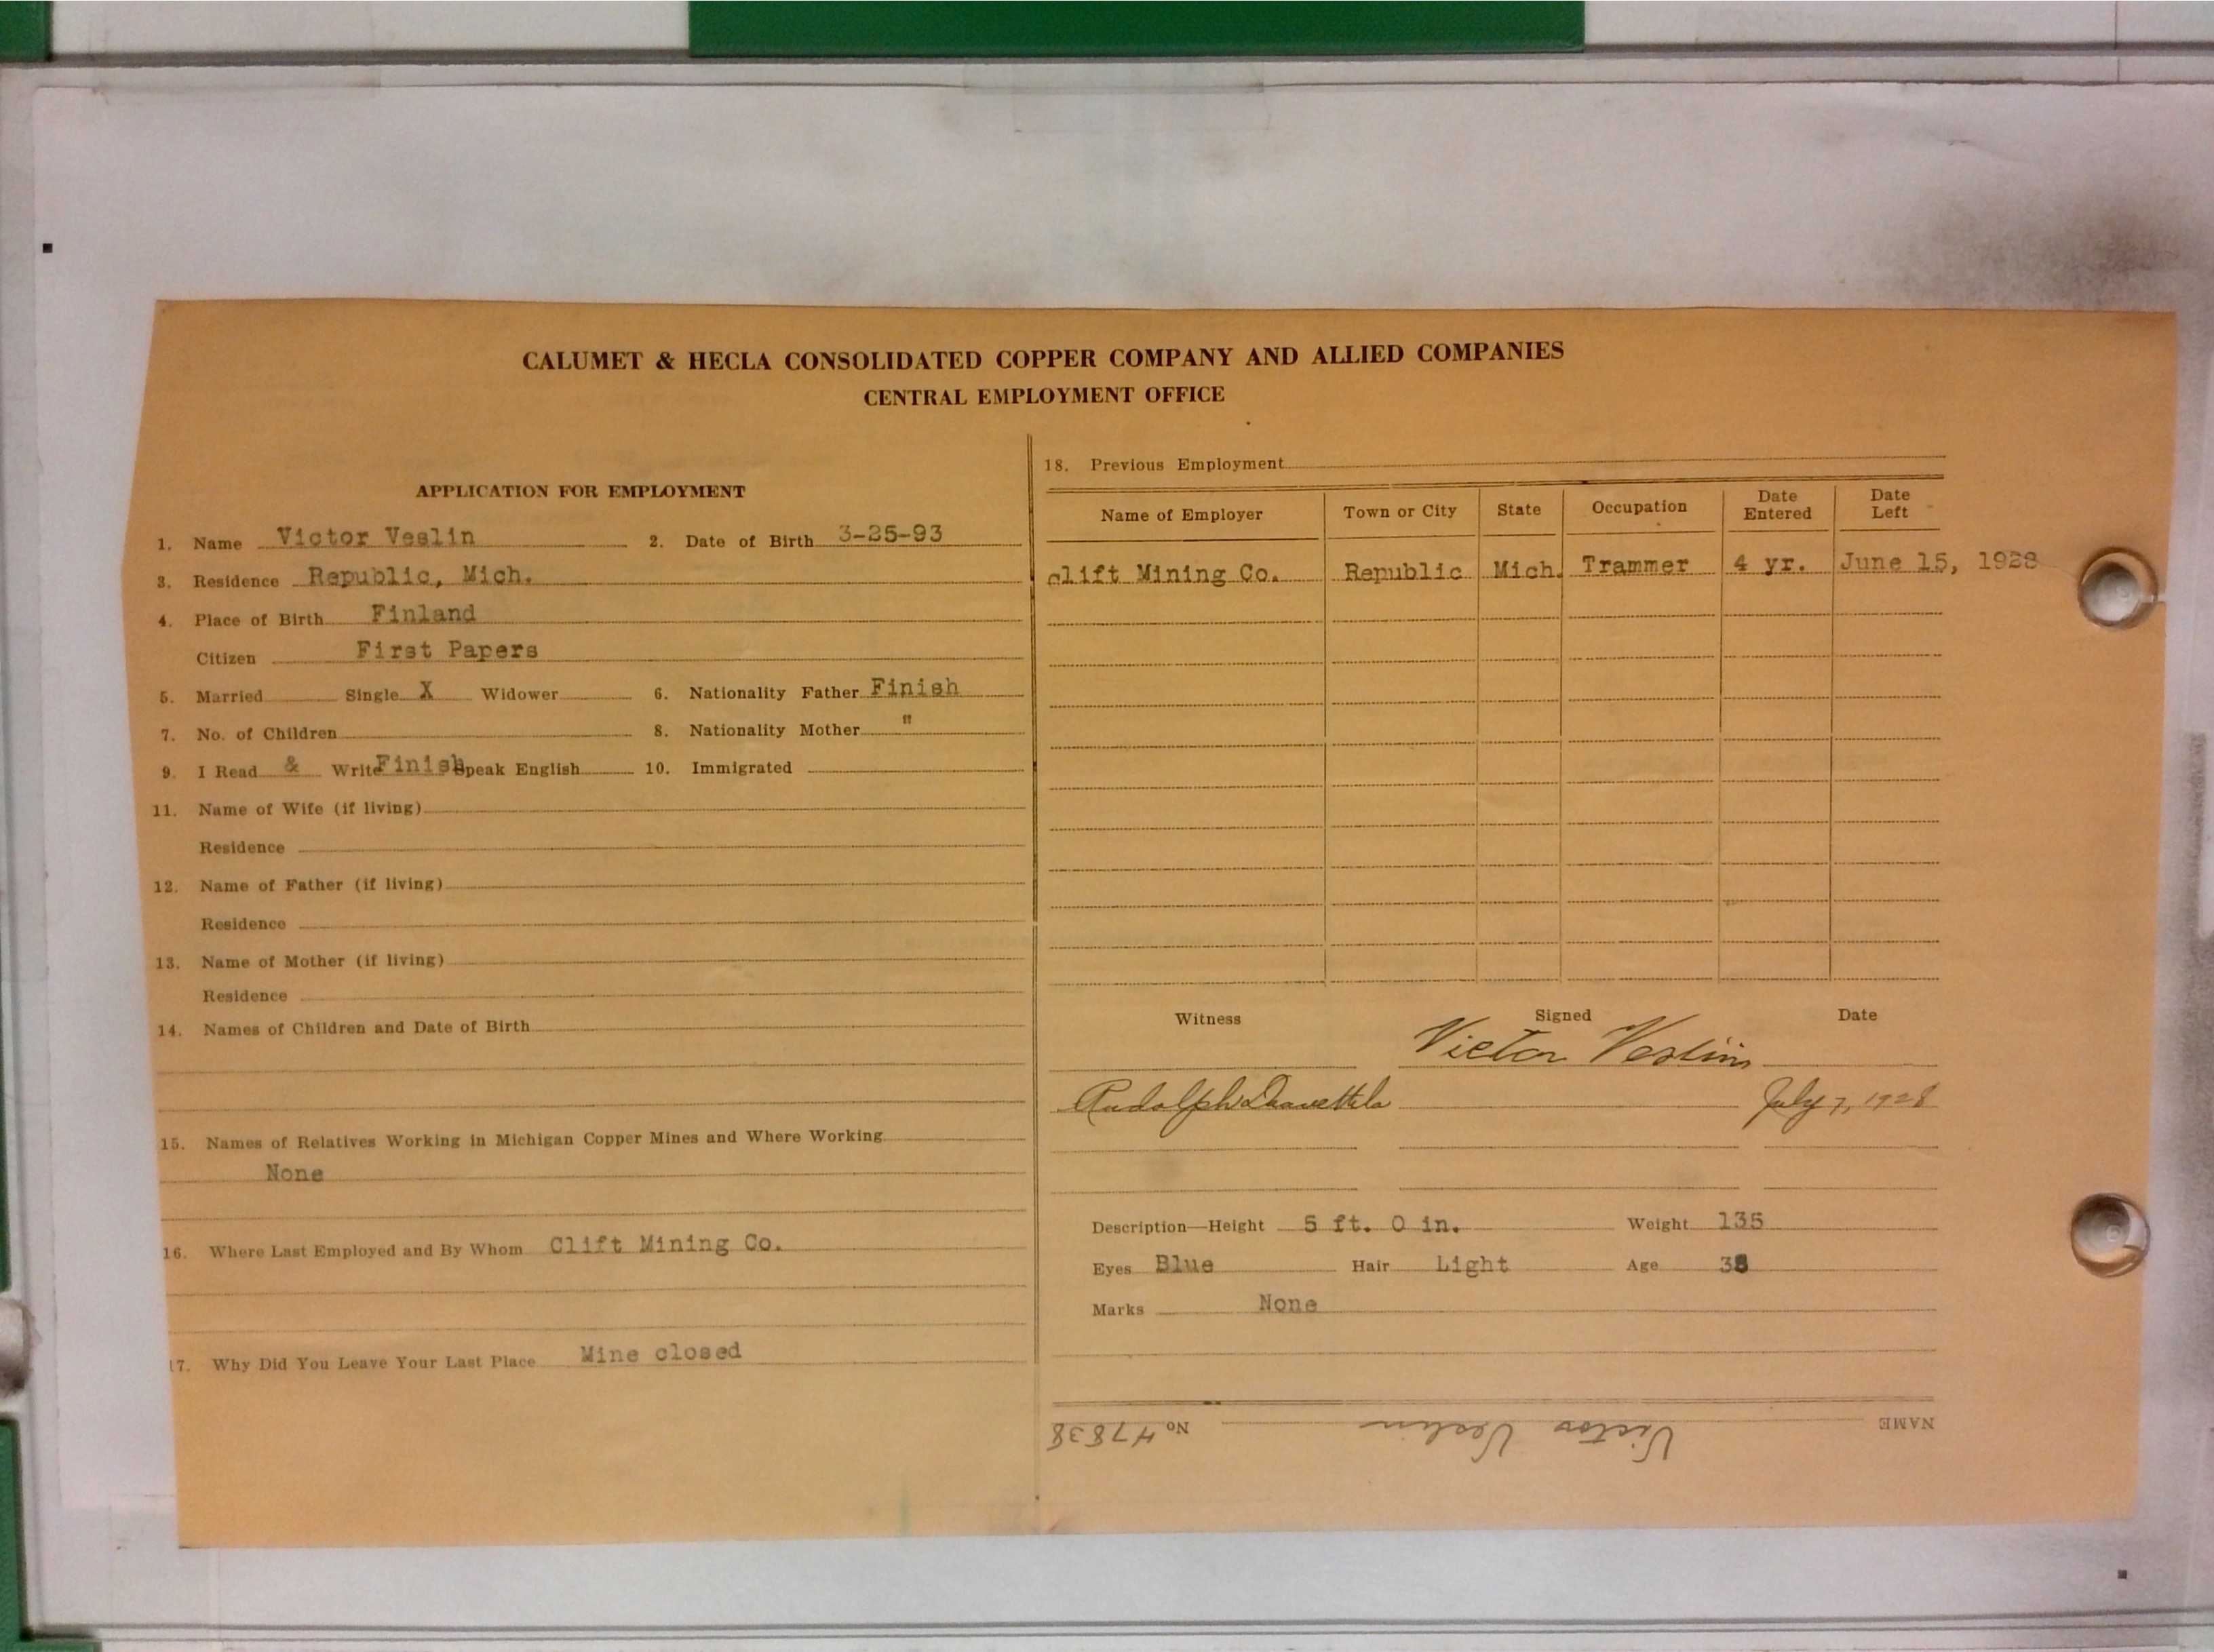 CALUMET & HECLA CONSOLIDATED COPPER COMPANY AND ALLIED COMPANIES
CENTRAL EMPLOYMENT OFFICE
APPLICATION FOR EMPLOYMENT
1. Name Victor Veslin 2. Date of Birth 3-25-93
3. Residence Republic, Mich.
4. Place of Birth Finland
Citizen First Papers
5. Married Single X Widower 6. Nationality Father Finish
7. No. of Children 8. Nationality Mother "
9. I Read & Write Finish Speak English 10. Immigrated
11. Name of Wife (if living)
Residence
12. Name of Father (if living)
Residence
13. Name of Mother (if living)
Residence
14. Names of Children and Date of Birth
15. Names of Relatives Working in Michigan Copper Mines and Where Working
None
16. Where Last Employed and By Whom Clift Mining Co.
17. Why Did You Leave Your Last Place Mine closed
18. Previous Employment
Name of Employer Town or City State Occupation Date Entered Date Left
Clift Mining Co. Republic Mich. Trammer 4 yr. June 15, 1928
Witness Signed Date
Victor Veslin
Rudolph July 7, 1928
Description—Height 5 ft. 0 in. Weight 135
Eyes Blue Hair Light Age
Marks None
NAME Victor Veslin No 47838